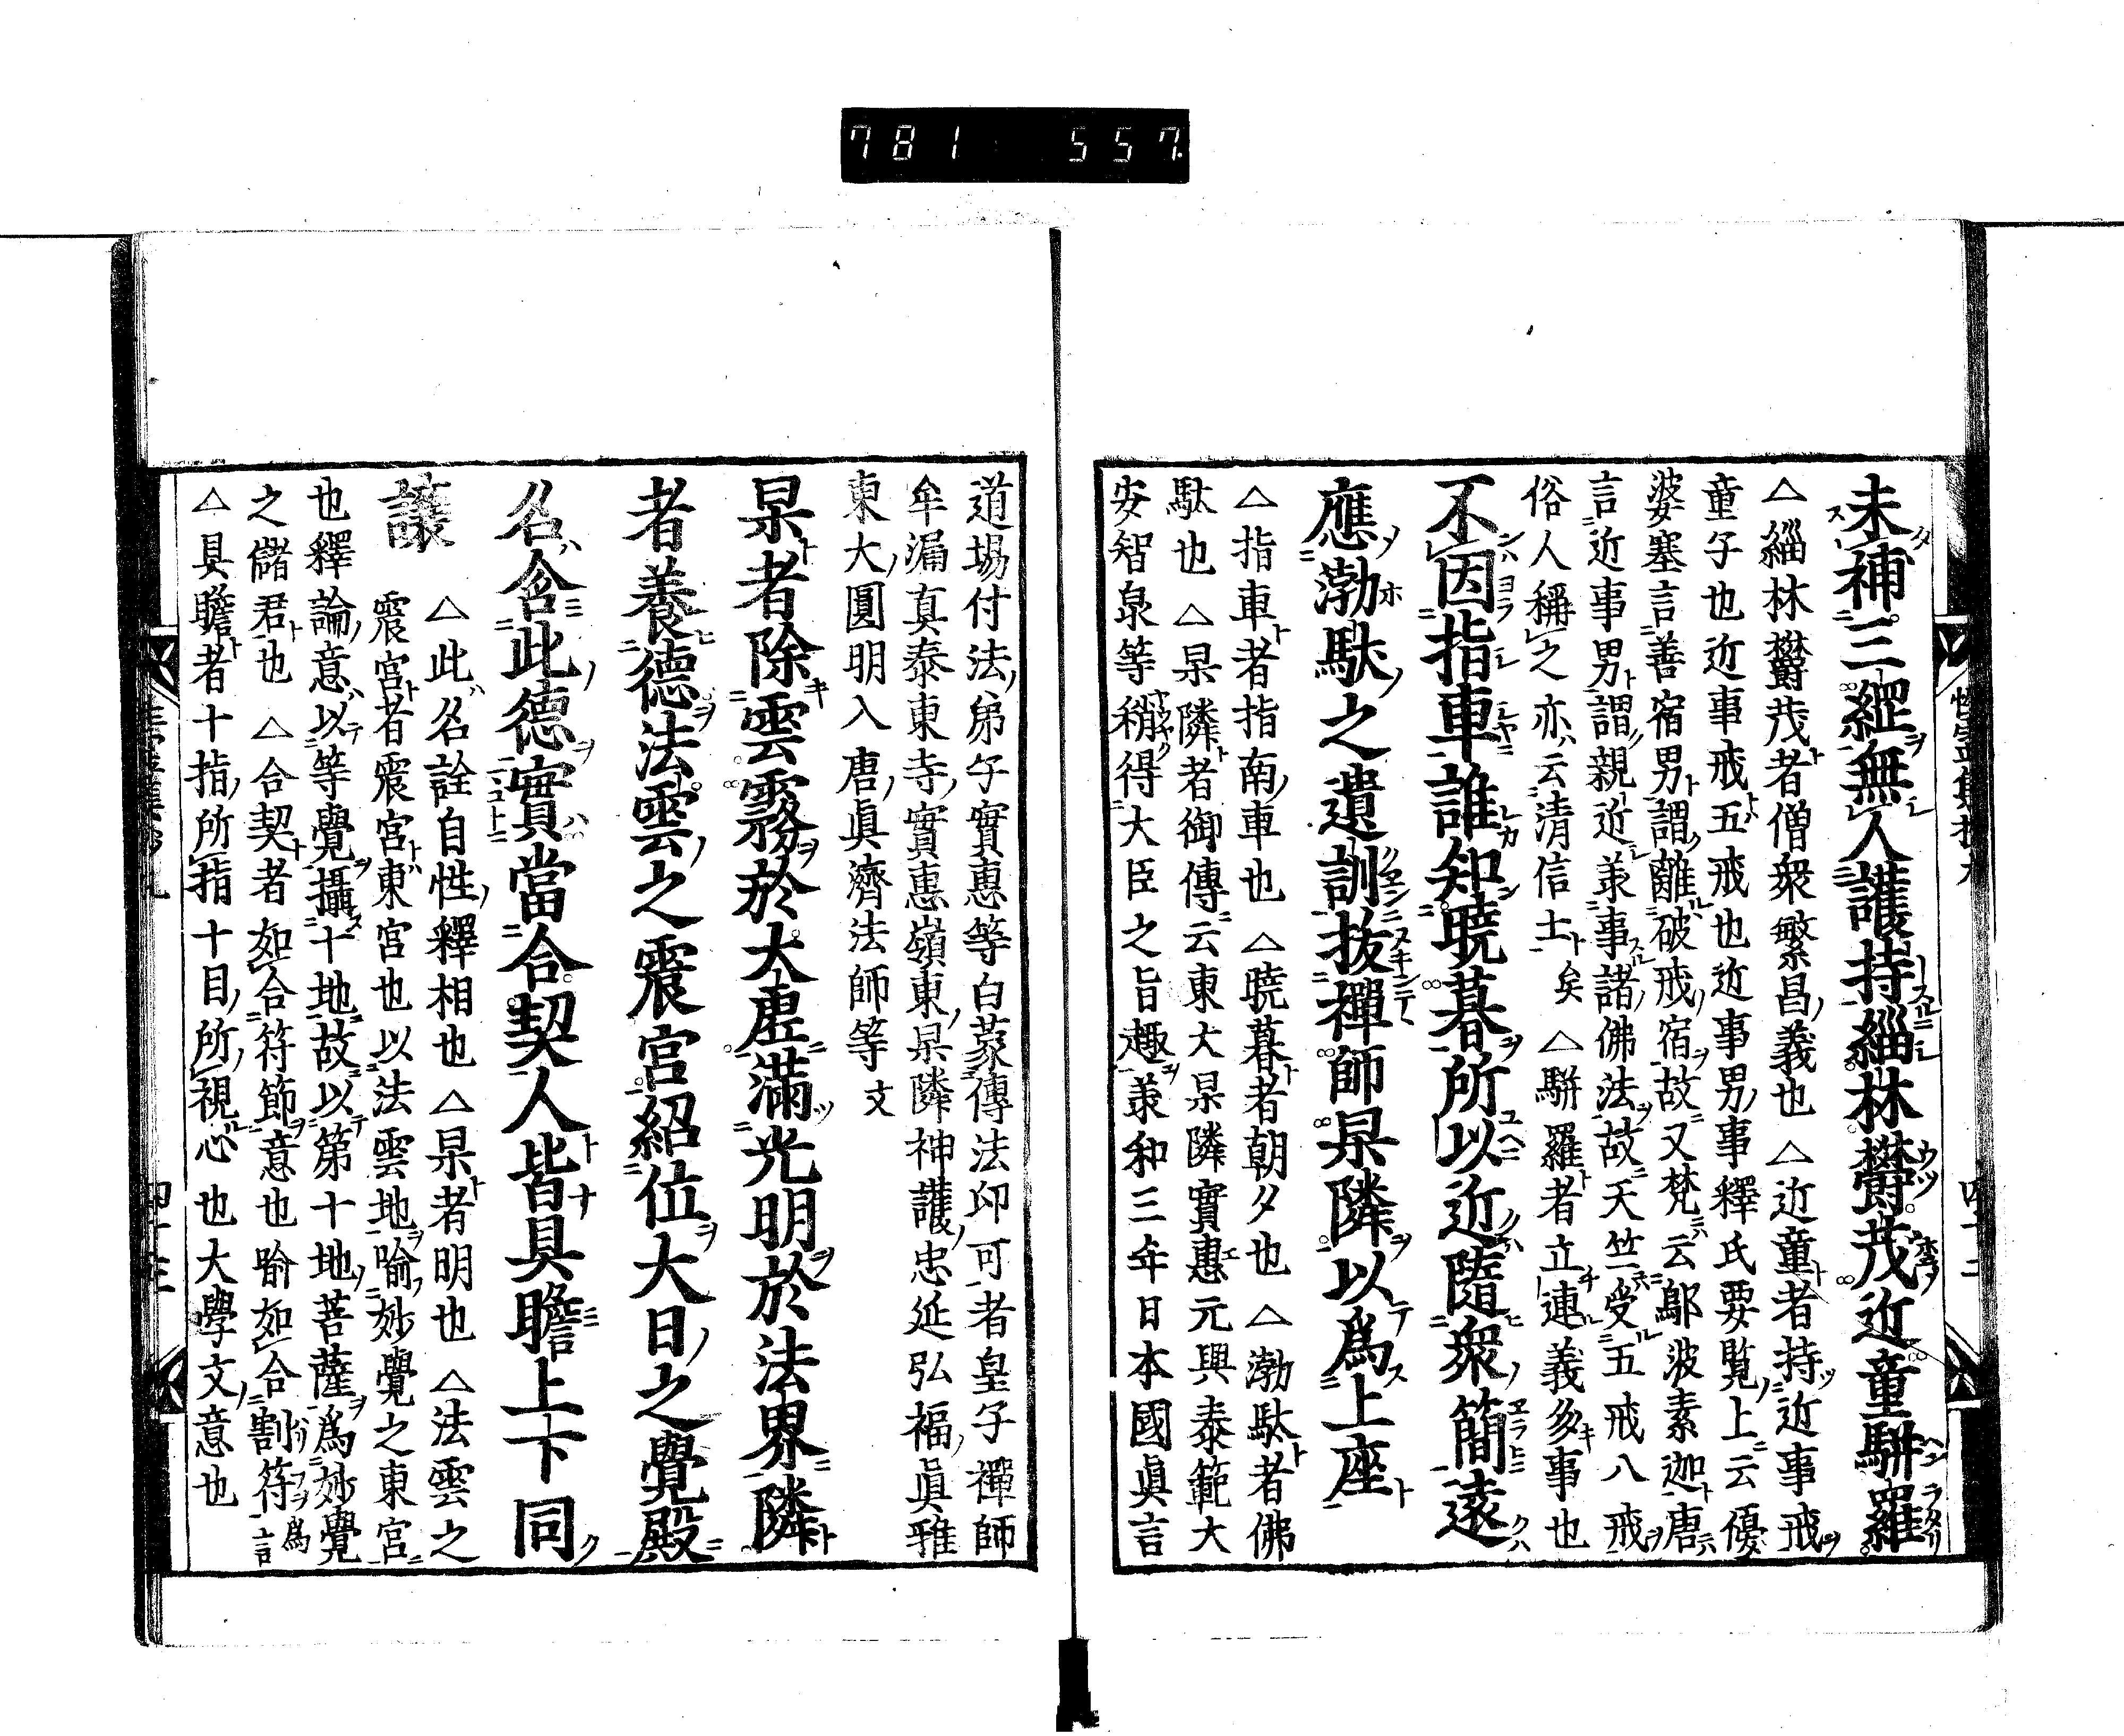 781 557
未補三綱無人護持緇林欝茂近童駢羅
△緇林欝茂者僧衆繁昌義也 △近童者持近事戒
童子也近事戒五戒也近事男事釋氏要覧上云優
婆塞言善宿男謂離破戒宿故又梵云鄔波素迦唐
言近事男謂親近兼事諸佛法故天竺受五戒八戒
俗人稱之亦云清信士矣 △駢羅者立連義多事也
不因指車誰知曉暮所以近隨衆簡遠
應渤馱之遺訓抜禪師杲隣以爲上座
△指車者指南車也 △曉暮者朝夕也 △渤馱者佛
馱也 △杲隣者御傳云東大杲隣實惠元興泰範大
安智泉等稍得大臣之旨趣兼和三年日本國眞言
道場付法弟子實惠等白蒙傳法印可者皇子禪師
牟漏真泰東寺實惠嶺東杲隣神護忠延弘福眞雅
東大圓明入唐眞濟法師等文
杲者除雲霧於大虚滿光明於法界隣
者養德法雲之震宮紹位大日之覺殿
名含此德實當合契人皆具瞻上下同
讓 △此名詮自性釋相也 △杲者明也 △法雲之
震宮者震宮東宮也以法雲地喻妙覺之東宮
也釋論意以等覺攝十地故以第十地菩薩爲妙覺
之儲君也 △合契者如合符節意也喻如合割符爲言
△具瞻者十指所指十目所視心也大學文意也